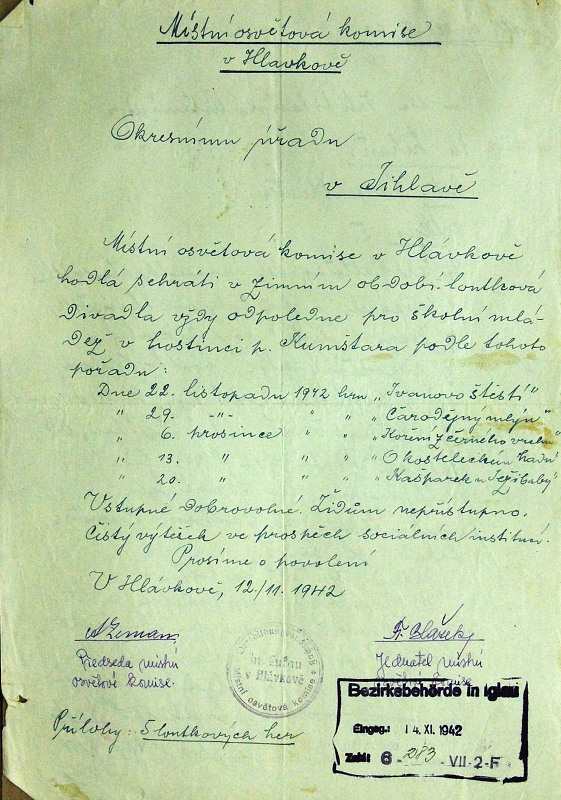 Místní osvětová komise
v Hlavkově
Okresnímu úřadu
v Jihlavě
Místní osvětová komise v Hlávkově
hodlá sehráti v zimním období loutková
divadla vždy odpoledne pro školní mlá-
dež v hostinci p. Kumštara podle tohoto
pořadu:
Dne 22. listopadu 1942 hru „Ivanovo štěstí"
" 29. -"- " " „Čarodějný mlýn"
" 6. prosince " " „Koření z černého vrchu"
" 13. " " " „O kosteleckém hadu"
" 20. " " " „Kašparek u Ježibaby"
Vstupné dobrovolné. Židům nepřístupno.
Čistý výtěžek ve prospěch sociálních institucí.
Prosíme o povolení
V Hlávkově, 12./11. 1942
AZeman
Fr. Blažek
Předseda místní
osvětové komise.
Jednatel místní
osvětové komise
in
v Hlávkově
Místní osvětová komise
Bezirksbehörde in Iglau
Eingeg.: 14. XI. 1942
Zahl: 6- 283 -VII-2-F
Přílohy: 5 loutkových her